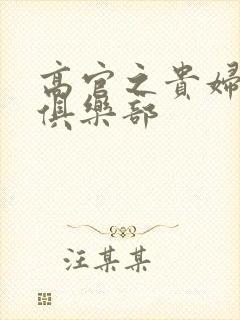 高官之貴婦
俱樂部
汪某某